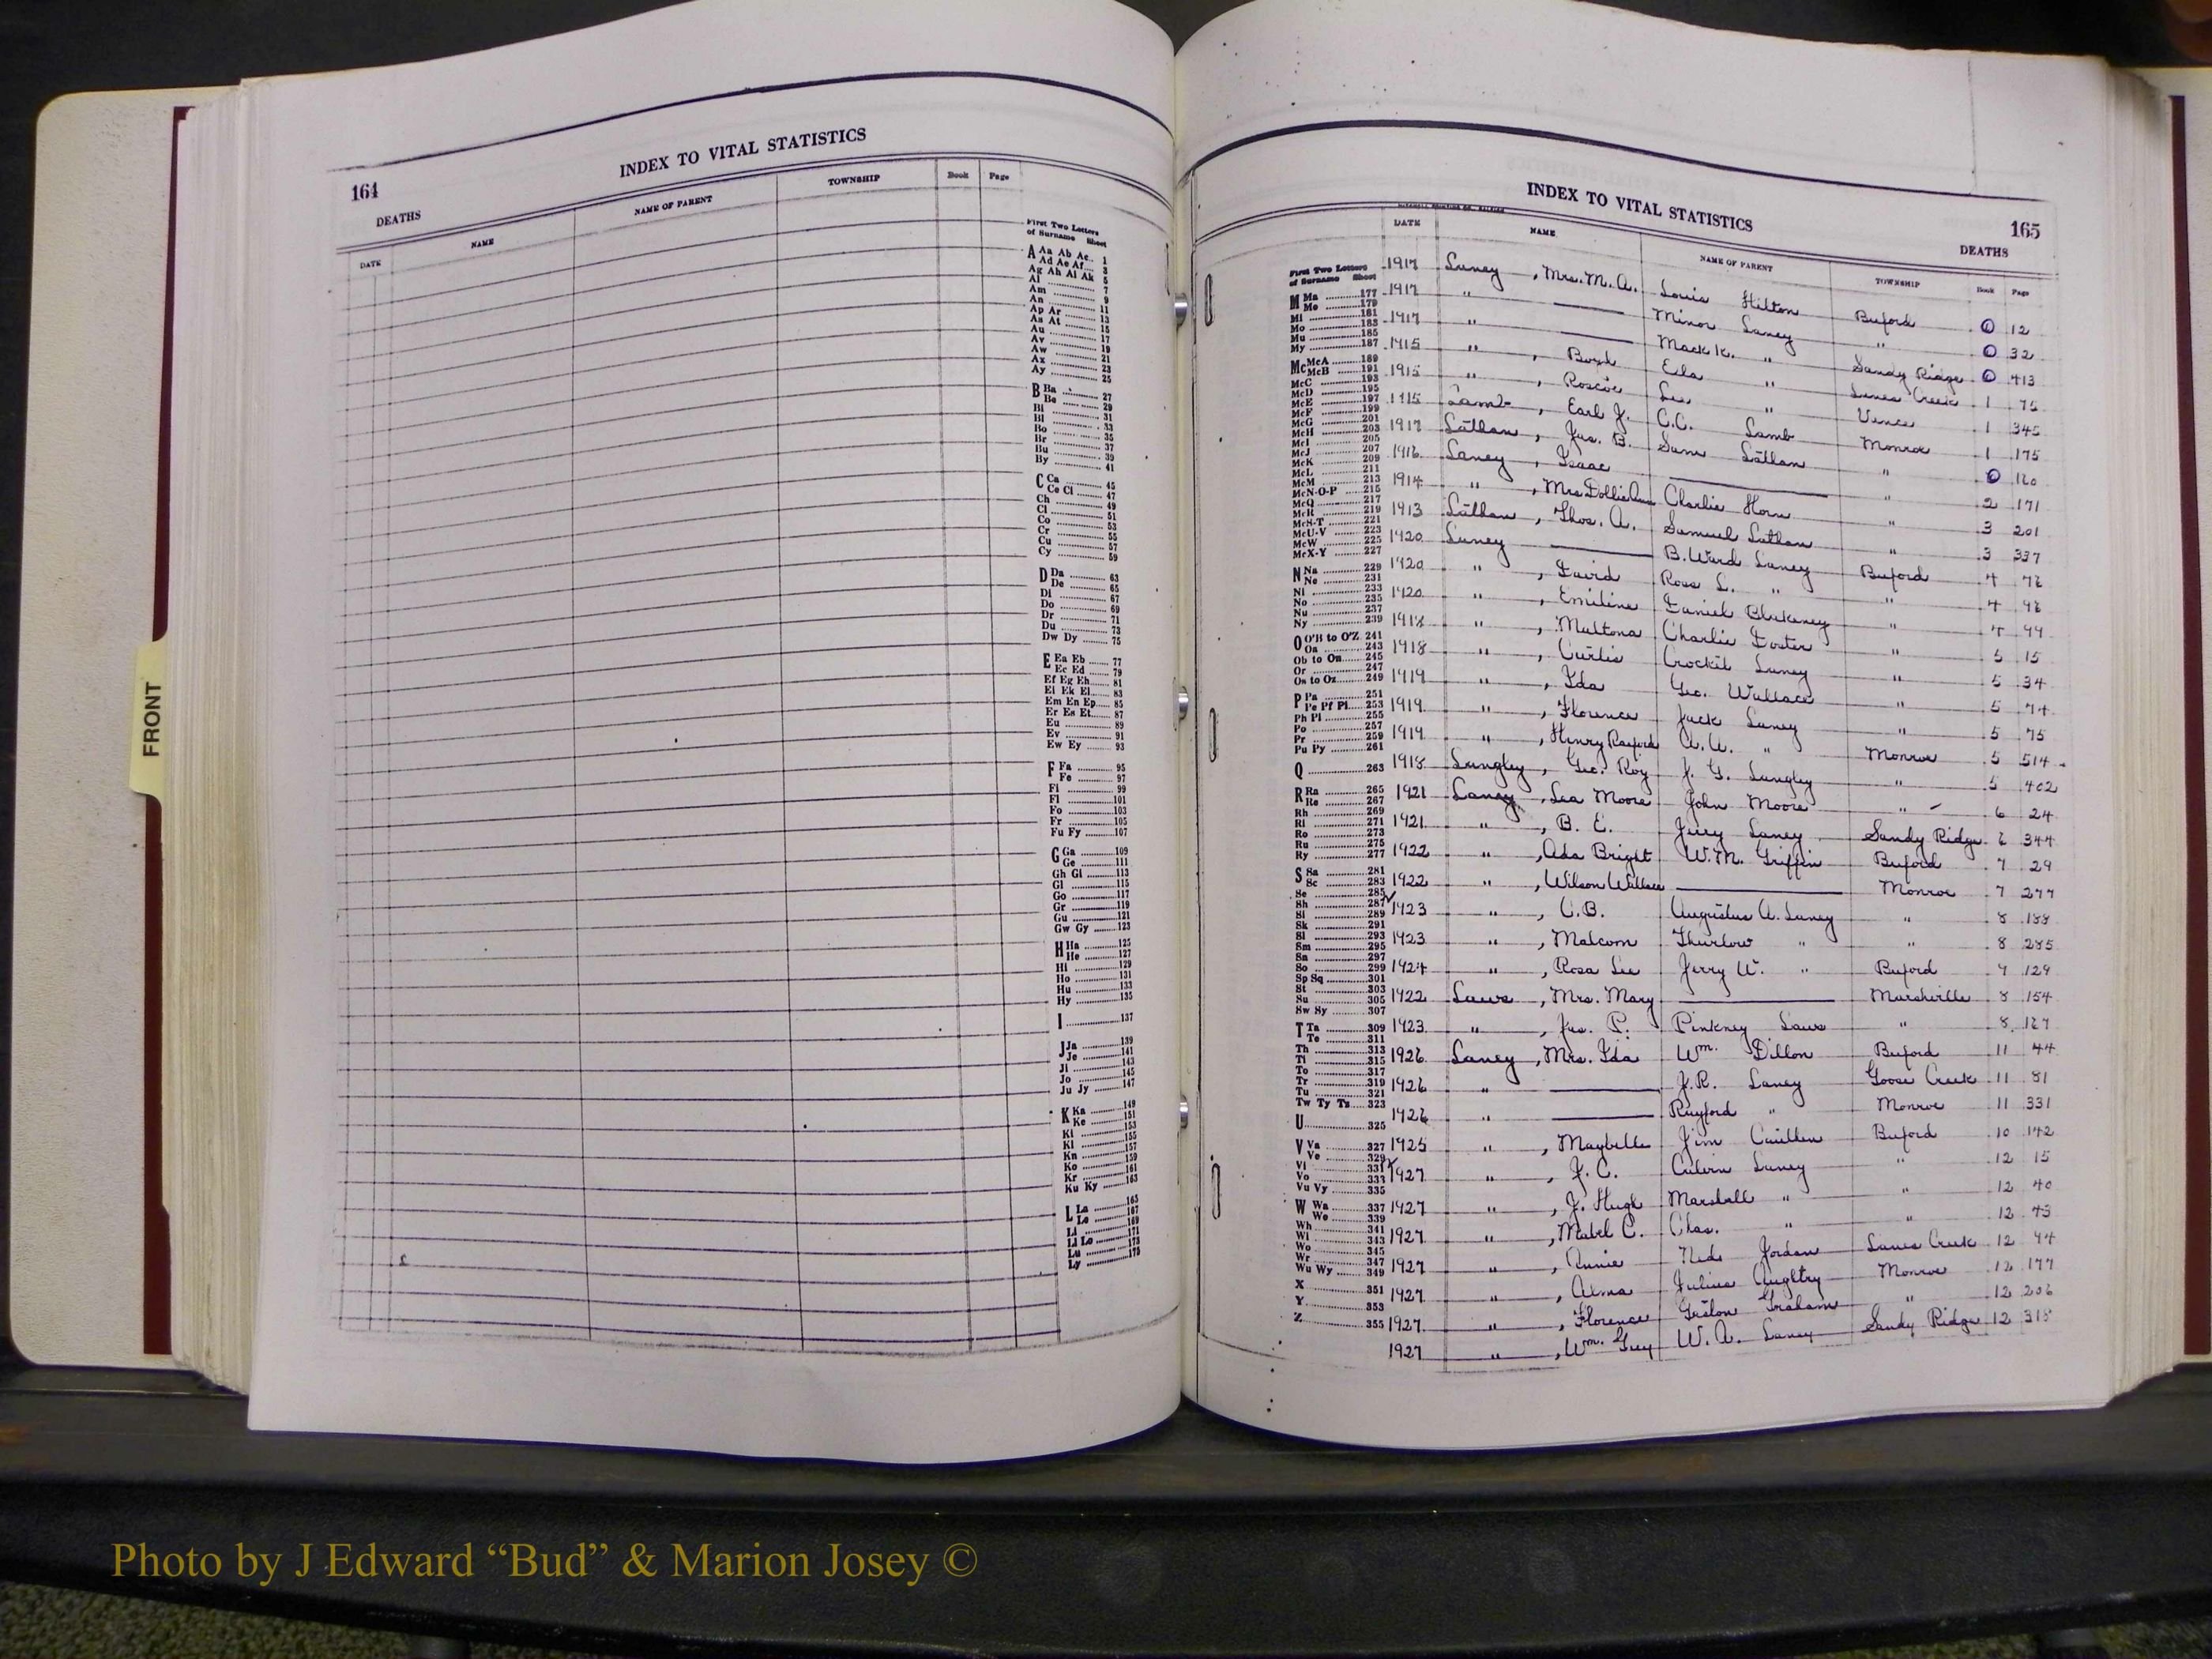 FRONT
164
INDEX TO VITAL STATISTICS
DEATHS
DATE NAME NAME OF PARENT TOWNSHIP Book Page
First Two Letters
of Surname Sheet
A Aa Ab Ac.. 1
Ad Ae Af.... 3
Ag Ah Ai Ak 5
Al ............ 7
Am ............ 9
An ............ 11
Ap Ar ........ 13
As At ........ 15
Au ............ 17
Av ............ 19
Aw ............ 21
Ax ............ 23
Ay ............ 25
B Ba ............ 27
Be ............ 29
Bi ............ 31
Bl ............ 33
Bo ............ 35
Br ............ 37
Bu ............ 39
By ............ 41
C Ca ............ 45
Ce Ci ........ 47
Ch ............ 49
Cl ............ 51
Co ............ 53
Cr ............ 55
Cu ............ 57
Cy ............ 59
D Da ............ 63
De ............ 65
Di ............ 67
Do ............ 69
Dr ............ 71
Du ............ 73
Dw Dy ........ 75
E Ea Eb ........ 77
Ec Ed ........ 79
Ef Eg Eh...... 81
Ei Ek El...... 83
Em En Ep...... 85
Er Es Et...... 87
Eu ............ 89
Ev ............ 91
Ew Ey ........ 93
F Fa ............ 95
Fe ............ 97
Fi ............ 99
Fl ............ 101
Fo ............ 103
Fr ............ 105
Fu Fy ........ 107
G Ga ............ 109
Ge ............ 111
Gh Gi ........ 113
Gl ............ 115
Go ............ 117
Gr ............ 119
Gu ............ 121
Gw Gy ........ 123
H Ha ............ 125
He ............ 127
Hi ............ 129
Ho ............ 131
Hu ............ 133
Hy ............ 135
I ............ 137
J Ja ............ 139
Je ............ 141
Ji ............ 143
Jo ............ 145
Ju Jy ........ 147
K Ka ............ 149
Ke ............ 151
Ki ............ 153
Kl ............ 155
Kn ............ 157
Ko ............ 159
Kr ............ 161
Ku Ky ........ 163
L La ............ 165
Le ............ 167
Li ............ 169
Ll Lo ........ 171
Lu ............ 173
Ly ............ 175
INDEX TO VITAL STATISTICS
165
DEATHS
DATE NAME NAME OF PARENT TOWNSHIP Book Page
First Two Letters
of Surname Sheet
M Ma ............ 177
Me ............ 179
Mi ............ 181
Mo ............ 183
Mu ............ 185
My ............ 187
Mc McA ............ 189
McB ............ 191
McC ............ 193
McD ............ 195
McE ............ 197
McF ............ 199
McG ............ 201
McH ............ 203
McI ............ 205
McJ ............ 207
McK ............ 209
McL ............ 211
McM ............ 213
McN-O-P ........ 215
McQ ............ 217
McR ............ 219
McS-T ........ 221
McU-V ........ 223
McW ............ 225
McX-Y ........ 227
N Na ............ 229
Ne ............ 231
Ni ............ 233
No ............ 235
Nu ............ 237
Ny ............ 239
O O'B to O'Z 241
Oa ............ 243
Ob to On...... 245
Or ............ 247
Os to Oz...... 249
P Pa ............ 251
Pe Pf Pi...... 253
Ph Pl ........ 255
Po ............ 257
Pr ............ 259
Pu Py ........ 261
Q ............ 263
R Ra ............ 265
Re ............ 267
Rh ............ 269
Ri ............ 271
Ro ............ 273
Ru ............ 275
Ry ............ 277
S Sa ............ 281
Sc ............ 283
Se ............ 285
Sh ............ 287
Si ............ 289
Sk ............ 291
Sl ............ 293
Sm ............ 295
Sn ............ 297
So ............ 299
Sp Sq ........ 301
St ............ 303
Su ............ 305
Sw Sy ........ 307
T Ta ............ 309
Te ............ 311
Th ............ 313
Ti ............ 315
To ............ 317
Tr ............ 319
Tu ............ 321
Tw Ty Tz...... 323
U ............ 325
V Va ............ 327
Ve ............ 329
Vi ............ 331
Vo ............ 333
Vu Vy ........ 335
W Wa ............ 337
We ............ 339
Wh ............ 341
Wi ............ 343
Wo ............ 345
Wr ............ 347
Wu Wy ........ 349
X ............ 351
Y ............ 353
Z ............ 355
1917 Laney , Mrs. M. A. Louis Hilton Buford 0 12
1917 " Minor Laney " 0 32
1917 " Mack K. " Sandy Ridge 0 413
1915 " , Boyd Eda " Lanes Creek 1 75
1915 " , Roscoe Lee " Vance 1 345
1915 Lamb , Earl J. C.C. Lamb Monroe 1 175
1917 Lathan , Jas. B. Sam Lathan " 0 160
1916 Laney , Isaac " 2 171
1914 " , Mrs Dollie Ann Charlie Horn " 3 201
1913 Lathan , Thos. A. Samuel Lathan " 3 337
1920 Laney B. Ward Laney Buford 4 76
1920 " , David Ross L. " " 4 96
1920 " , Emiline Daniel Blakeney " 4 99
1918 " , Multona Charlie Foster " 5 15
1918 " , Curtis Crockit Laney " 5 34
1919 " , Ida Geo. Wallace " 5 74
1919 " , Florence Jack Laney " 5 75
1919 " , Henry Raeford A. A. " Monroe 5 514
1918 Langley , Geo. Roy J. G. Langley " 5 402
1921 Laney , Lea Moore John Moore " 6 24
1921 " , B. E. Jerry Laney Sandy Ridge 6 344
1922 " , Ada Bright W. M. Griffin Buford 7 29
1922 " , Wilson Wallace Monroe 7 277
1923 " , C. B. Augustus A. Laney " 8 188
1923 " , Malcom Thurlow " " 8 285
1924 " , Rosa Lee Jerry W. " Buford 9 129
1922 Laws , Mrs. Mary Marshville 8 154
1923 " , Jas. P. Pinkney Laws " 8 167
1926 Laney , Mrs. Ida Wm. Dillon Buford 11 44
1926 " J. R. Laney Goose Creek 11 81
1926 " Rayford " Monroe 11 331
1925 " , Maybelle Jim Buford 10 142
1927 " , J. C. Calvin Laney " 12 15
1927 " , J. Hugh Marshall " " 12 40
1927 " , Mabel C. Chas. " " 12 43
1927 " , Annie Ned Jordan Lanes Creek 12 94
1927 " , Alma Julius Monroe 12 177
1927 " , Florence Graham " 12 206
1927 " , Wm. Guy W. A. Laney Sandy Ridge 12 315
Photo by J Edward “Bud” & Marion Josey ©